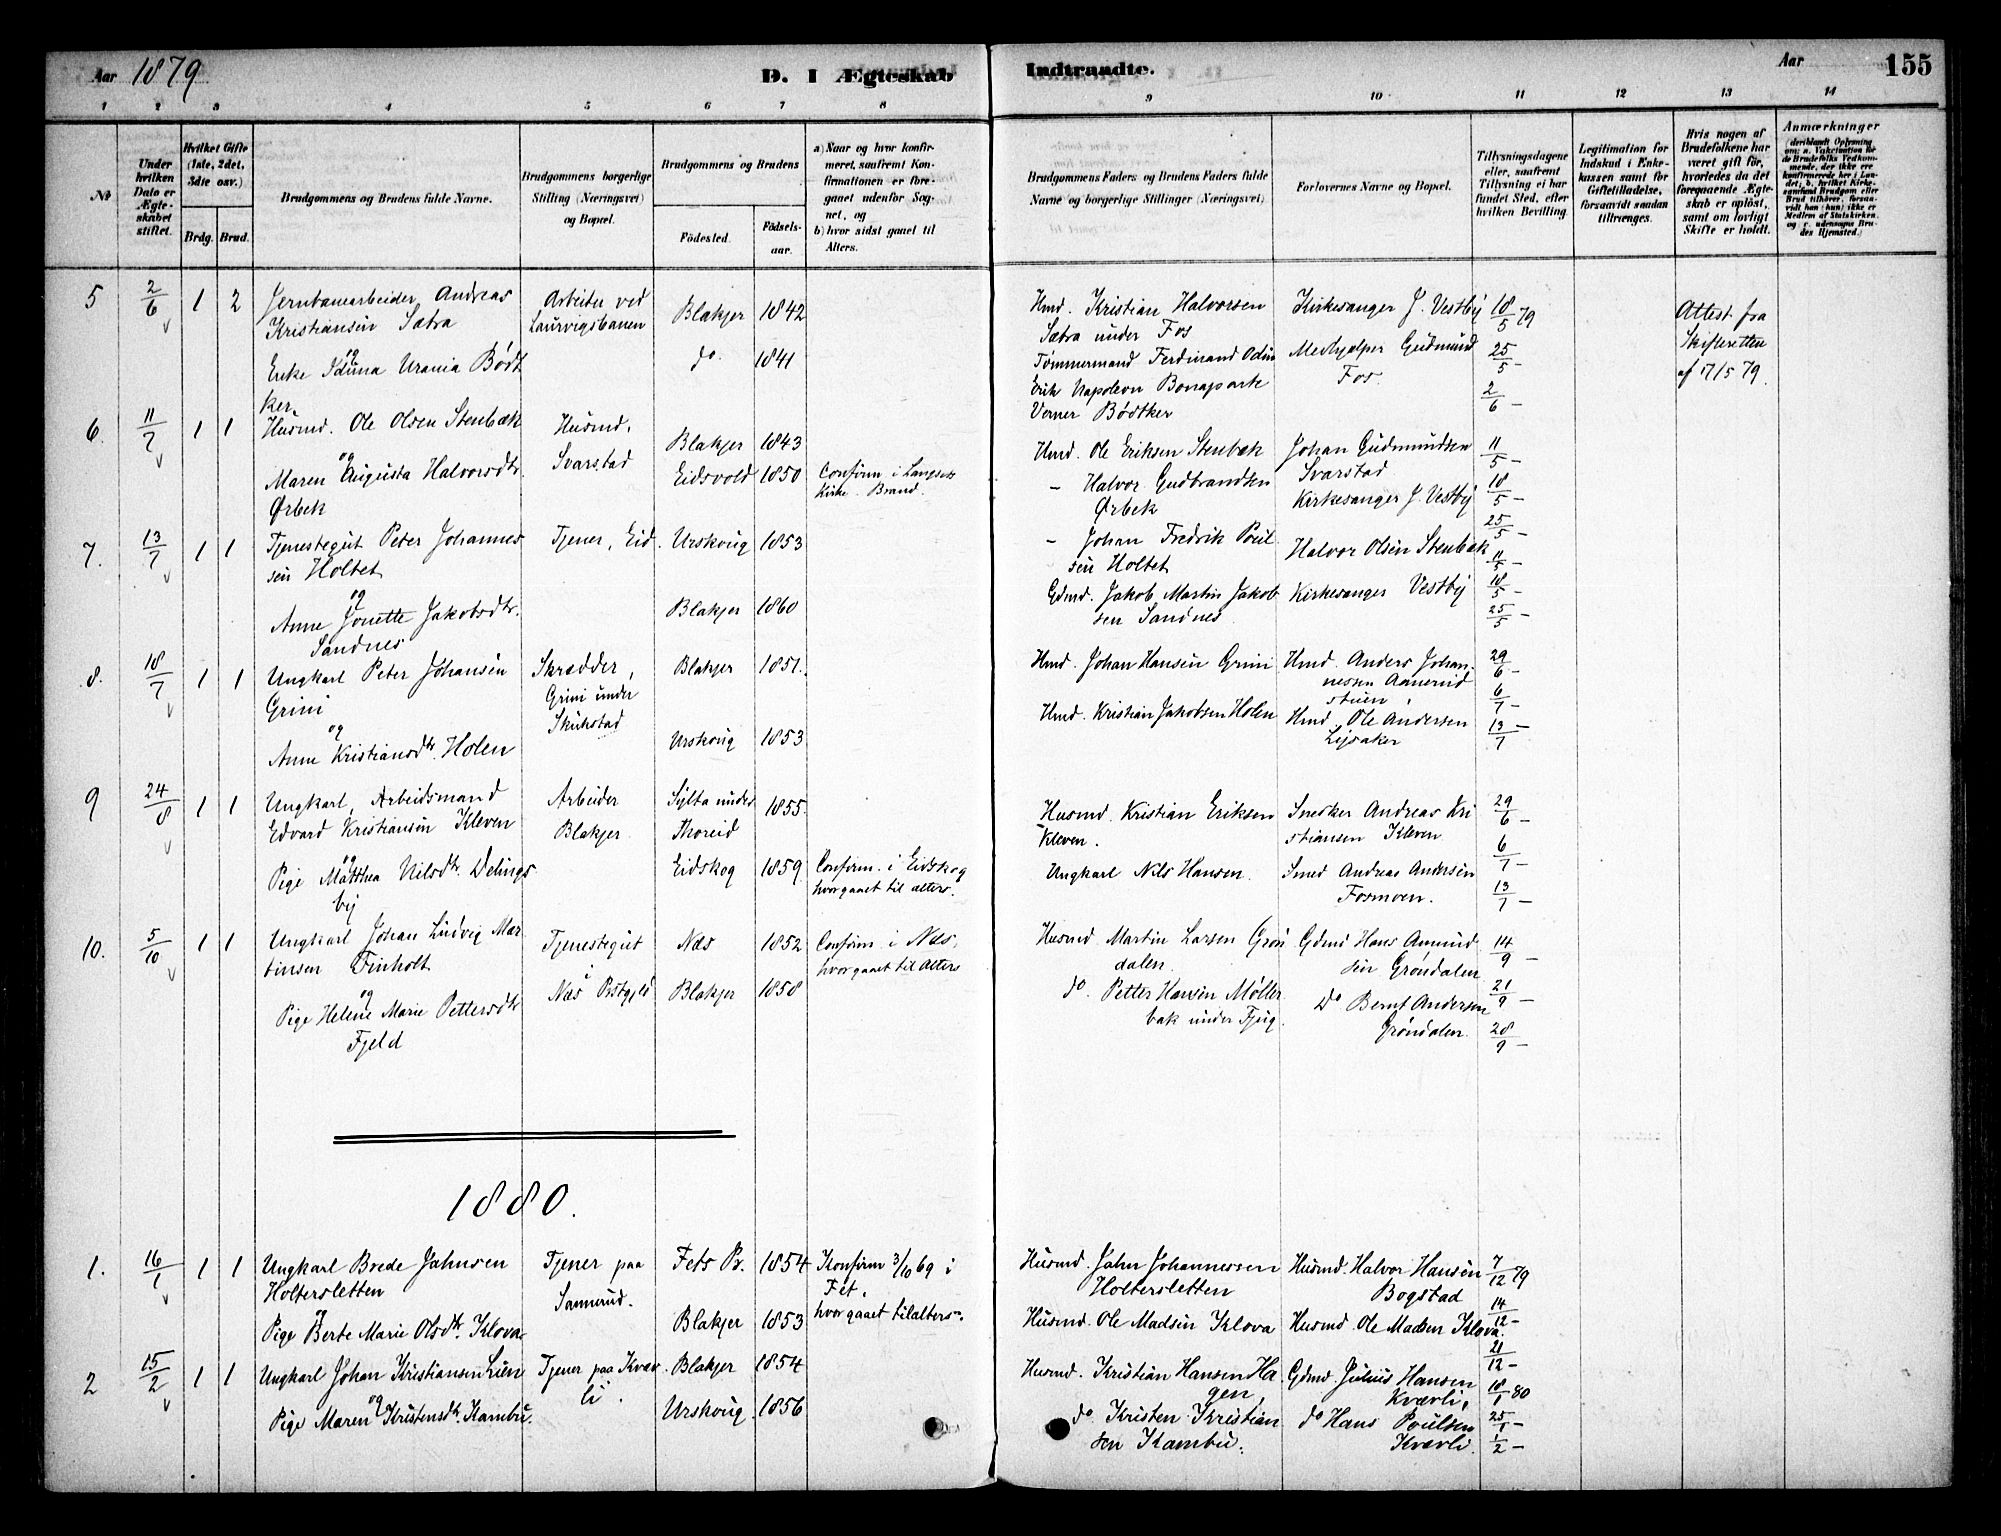 Aar 1879
D. I Ægteskab Indtraadte.
Aar
155
1 2 3 4 5 6 7 8 9 10 11 12 13 14
№
Under hvilken Dato er Ægteskabet stiftet.
Hvilket Gifte (1ste, 2det, 3die osv.)
Brdg. Brud.
Brudgommens og Brudens fulde Navne.
Brudgommens borgerlige Stilling (Næringsvei) og Bopæl.
Brudgommens og Brudens
Födested.
Födselsaar.
a) Naar og hvor konfirmeret, saafremt Konfirmationen er foregaaet udenfor Sognet, og
b) hvor sidst gaaet til Alters.
Brudgommens Faders og Brudens Faders fulde Navne og borgerlige Stillinger (Næringsvei)
Forlovernes Navne og Bopæl.
Tillysningsdagene eller, saafremt Tillysning ei har fundet Sted, efter hvilken Bevilling.
Legitimation for Indskud i Enkekassen samt for Giftetilladelse, forsaavidt saadan tiltrænges.
Hvis nogen af Brudefolkene har været gift för, hvorledes da det foregaaende Ægteskab er oplöst, samt om lovligt Skifte er holdt.
Anmærkninger
5 2/6 1 2 Jernbanearbeider Andreas
Kristiansen Sætra
og
Enke Iduna Urania Bødt
ker
Arbeider ved
Laurvigsbanen
Blakjer 1842
do. 1841
Hmd. Kristian Halvorsen
Sætra under Fos
Tømmermand Ferdinand Odin
Erik Napoleon Bonaparte
Verner Bødtker
Kirkesanger J. Vestby
Medhjælper Gudmund
Fos.
18/5 79
25/5 -
2/6 -
Attest fra
Skifteretten
af 17/5 79.
6. 11/7 1 1 Husmd. Ole Olsen Stenbæk
og
Maren Augusta Halvorsdtr.
Ørbek
Husmd.
Svarstad
Blakjer 1843
Eidsvold 1850
Confirm. i Langset
Kirke. Brand.
Hmd. Ole Eriksen Stenbæk
- Halvor Gudbrandsen
Ørbek
Johan Gudmundsen
Svarstad
Kirkesanger J. Vestby
11/5 -
18/5 -
25/5 -
7. 13/7 1 1 Tjenestegut Peter Johannes
sen Holtet
og
Anne Jonette Jakobsdtr.
Sandnes
Tjener, Eid.
Urskoug 1853
Blakjer 1860
- Johan Fredrik Poul
sen Holtet
Gdmd. Jakob Martin Jakob
sen Sandnes
Halvor Olsen Stenbæk
Kirkesanger Vestby
11/5 -
18/5 -
25/5 -
8. 18/7 1 1 Ungkarl Peter Johansen
Grini
og
Anne Kristiansdtr. Holen
Skrædder,
Grini under
Skukstad
Blakjer 1851.
Urskoug 1853
Hmd. Johan Hansen Grini
Hmd. Kristian Jakobsen Holen
Hmd. Anders Johan-
nessen Aamerud
stuen
Hmd. Ole Andersen
Lysaker
29/6 -
6/7 -
13/7 -
9 24/8 1 1 Ungkarl, Arbeidsmand
Edvard Kristiansen Kleven
og
Pige Matthea Nilsdtr. Delings
by
Arbeider
Blakjer
Sylta under
Thoreid 1855.
Eidskog 1859
Confirm. i Eidskog
hvor gaaet til alters.
Husmd. Kristian Eriksen
Kleven.
Ungkarl Nils Hansen.
Snedker Andreas Kri
stiansen Kleven
Smed Andreas Andersen
Fosmoen.
29/6 -
6/7 -
13/7 -
10. 5/10 1 1 Ungkarl Johan Ludvig Mar
tinsen Finholt
og
Pige Helene Marie Pettersdtr
Fjeld
Tjenestegut
i
Næs Prstgjld
Næs 1852
Blakjer 1858
Confirm. i Næs,
hvor gaaet til alters
Husmd. Martin Larsen Grøn
dalen.
do. Petter Hansen Møller
bak under Fjug.
Gdmd Hans Amund
sen Grøndalen
Do Bernt Andersen
Grøndalen
14/9 -
21/9 -
28/9 -
1880.
1. 16/1 1 1 Ungkarl Brede Jahnsen
Holtersletten
og
Pige Berte Marie Olsdtr. Klova
Tjener paa
Sannerud.
Fets Pr. 1854
Blakjer 1853
Konfirm 3/10 69 i
Fet,
hvor gaaet til alters.
Husmd. Jahn Johannessen
Holtersletten
Husmd. Ole Madsen Klova
Husmd. Halvor Hansen
Bogstad
Husmd. Ole Madsen Klova.
7/12 79
14/12 -
21/12 -
2 15/2 1 1 Ungkarl Johan Kristiansen Lien
og
Pige Maren Kristensdtr. Kambu.
Tjener paa Kvær
li.
Blakjer 1854
Urskoug. 1856
Husmd. Kristian Hansen Ha
gen,
do. Kristen Kristian
sen Kambu.
Gdmd. Julius Hansen
Kværli,
do Hans Poulsen
Kværli.
18/1 80
25/1 -
1/2 -